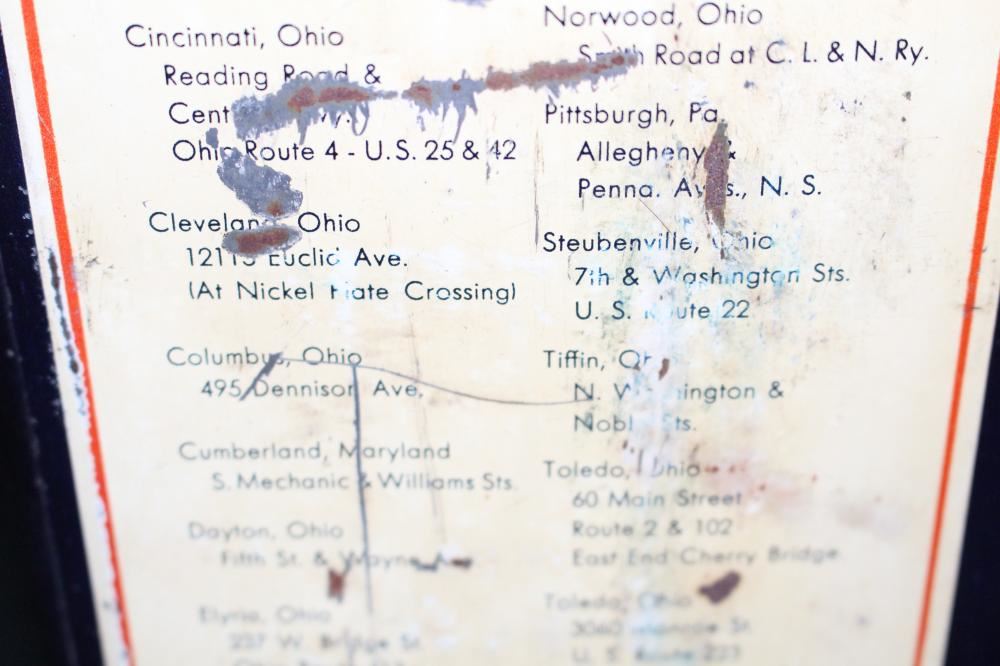 Cincinnati, Ohio
Reading Road &
Ohio Route 4 - U.S. 25 & 42
Cleveland, Ohio
Euclid Ave.
(At Nickel Plate Crossing)
Columbus, Ohio
495 Dennison Ave.
Cumberland, Maryland
S. Mechanic & Williams Sts.
Dayton, Ohio
Fifth St. & Wayne Ave.
Elyria, Ohio
237 W. Bridge St.
Norwood, Ohio
Smith Road at C. L. & N. Ry.
Pittsburgh, Pa.
Allegheny &
Penna. Aves., N. S.
Steubenville, Ohio
7th & Washington Sts.
U. S. Route 22
Tiffin, Ohio
N. Washington &
Noble Sts.
Toledo, Ohio
60 Main Street
Route 2 & 102
East End Cherry Bridge
Toledo, Ohio
3060 St.
U. S. Route 223